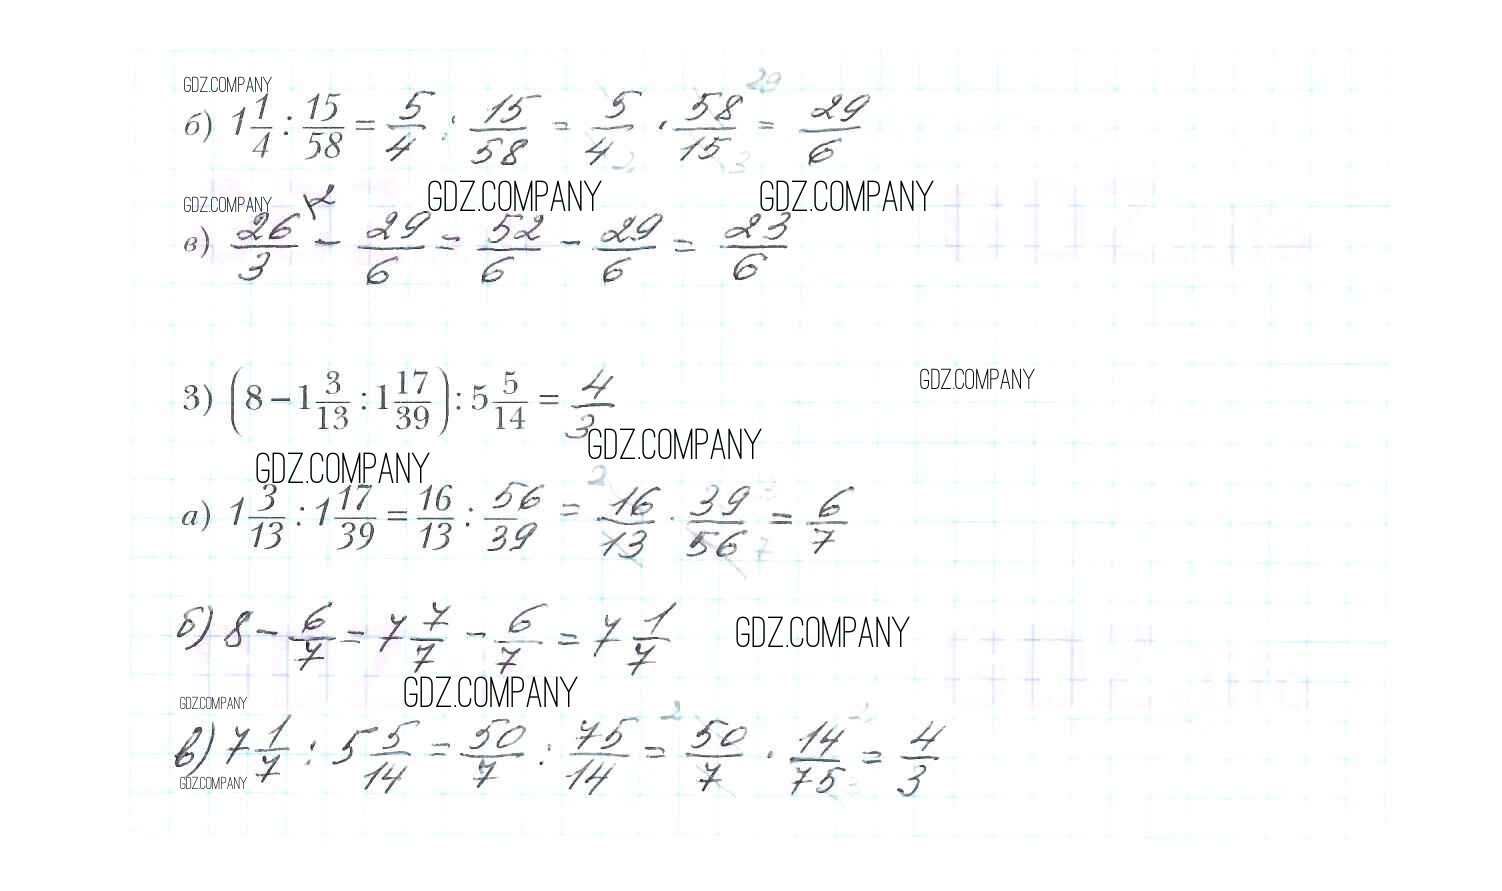 GDZ.COMPANY
29
б) 1 1/4 : 15/58 = 5/4 : 15/58 = 5/4 · 58/15 = 29/6
2 3
GDZ.COMPANY 2 GDZ.COMPANY GDZ.COMPANY
в) 26/3 - 29/6 = 52/6 - 29/6 = 23/6
3) (8 - 1 3/13 : 1 17/39) : 5 5/14 = 4/3
GDZ.COMPANY
GDZ.COMPANY
GDZ.COMPANY
2
а) 1 3/13 : 1 17/39 = 16/13 : 56/39 = 16/13 · 39/56 = 6/7
7
б) 8 - 6/7 = 7 7/7 - 6/7 = 7 1/7
GDZ.COMPANY
GDZ.COMPANY
GDZ.COMPANY
2
в) 7 1/7 : 5 5/14 = 50/7 : 75/14 = 50/7 · 14/75 = 4/3
GDZ.COMPANY